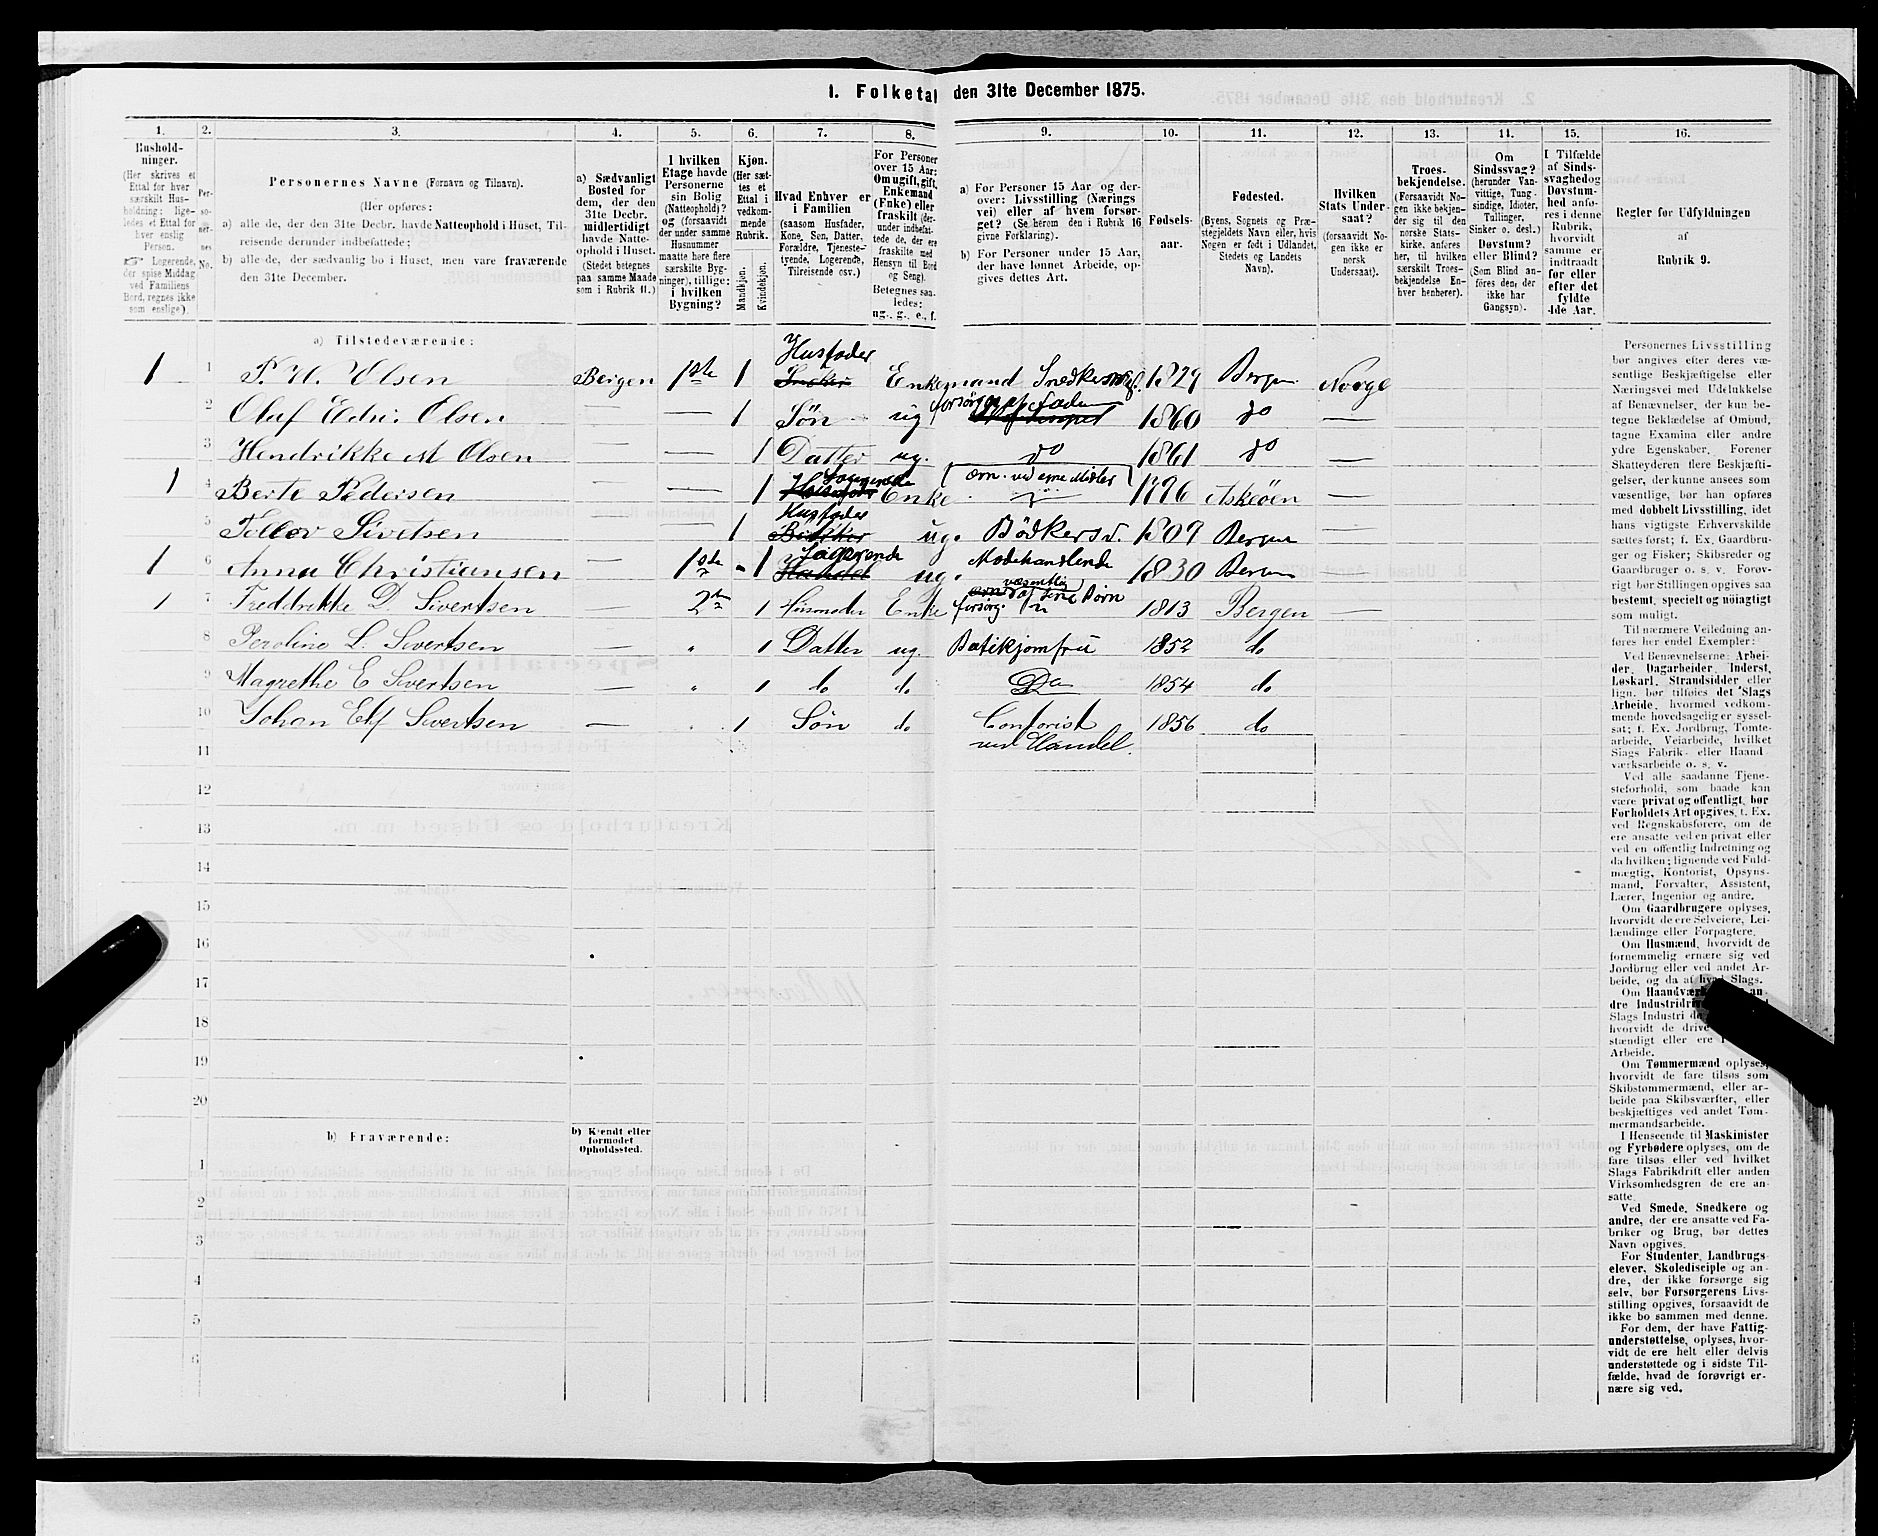 1. Folketal den 31te December 1875.
1. 2. 3. 4. 5. 6. 7. 8. 9. 10. 11. 12. 13. 14. 15. 16.
Hushold-
ninger.
(Her skrives et
Ettal for hver
særskilt Hus-
holdning; lige-
ledes et Ettal for
hver enslig
Person.
☞ Logerende,
der spise Middag
ved Familiens
Bord, regnes ikke
som enslige).
Per-
so-
ner-
nes
No.
Personernes Navne (Fornavn og Tilnavn).
(Her opføres:
a) alle de, der den 31te Decbr. havde Natteophold i Huset, Til-
reisende derunder indbefattede;
b) alle de, der sædvanlig bo i Huset, men vare fraværende
den 31te December.
a) Sædvanligt
Bosted for
dem, der den
31te Decbr.
midlertidigt
havde Natte-
ophold i Huset.
(Stedet betegnes
paa samme Maade
som i Rubrik 11.)
I hvilken
Etage havde
Personerne
sin Bolig
(Natteophold)?
og (forsaavidt
der under samme
Husnummer
maatte høre flere
særskilte Byg-
ninger), tillige:
i hvilken
Bygning?
Kjøn.
(Her sæt-
tes et
Ettal i
vedkom-
mende
Rubrik.
Mandkjøn.
Kvindekjøn.
Hvad Enhver er
i Familien
(saasom Husfader,
Kone, Søn, Datter,
Forældre, Tjeneste-
tyende, Logerende,
Tilreisende osv.)
For Personer
over 15 Aar:
Om ugift, gift,
Enkemand
(Enke) eller
fraskilt (der-
under indbefat-
tede de, der ere
fraskilte med
Hensyn til Bord
og Seng).
Betegnes saa-
ledes:
ug., g., e., f.
a) For Personer 15 Aar og der-
over: Livsstilling (Nærings-
vei) eller af hvem forsør-
get? (Se herom den i Rubrik 16
givne Forklaring).
b) For Personer under 15 Aar,
der have lønnet Arbeide, op-
gives dettes Art.
Fødsels-
aar.
Fødested.
(Byens, Sognets og Præ-
stegjeldets Navn eller, hvis
Nogen er født i Udlandet,
Stedets og Landets
Navn).
Hvilken
Stats Under-
saat?
(forsaavidt No-
gen ikke er
norsk
Undersaat).
Troes-
bekjendelse.
(Forsaavidt No-
gen ikke bekjen-
der sig til den
norske Stats-
kirke, anføres
her, til hvilken
særskilt Troes-
bekjendelse En-
hver henhører).
Om
Sindssvag?
(herunder Van-
vittige, Tung-
sindige, Idioter,
Tullinger,
Sinker o. desl.)
Døvstum?
eller Blind?
(Som Blind an-
føres den, der
ikke har
Gangsyn).
I Tilfælde
af Sinds-
svaghed og
Døvstum-
hed anfø-
res i denne
Rubrik,
hvorvidt
samme er
indtraadt
før eller
efter det
fyldte
4de Aar.
Regler for Udfyldningen
af
Rubrik 9.
a) Tilstedeværende:
Husfader
1 1 P. H. Olsen Bergen 1ste 1 Enkemand Snedkersvend. 1829 Bergen Norge
2 Oluf Edv. Olsen 1 Søn ug forsørges af Faderen 1860 do
3 Hendrikke M Olsen 1 Datter ug. do 1861 do
1 4 Berte Pedersen 1 Logerende Enke ern. ved egne Midler 1796 Askøen
5 Tollev Sivetsen 1 Husfader ug. Bödkersv. 1809 Bergen
1 6 Anna Christiansen 1ste 1 Logerende ug. Modehandlende 1830 Bergen
1 7 Freddrikke D. Sivertsen 2den 1 Husmoder Enke forsørg. væsentlig af sine Børn 1813 Bergen
8 Peroline L. Sivertsen " 1 Datter ug. Butikjomfru 1852 do
9 Magrethe E Sivertsen " 1 do do Do 1854 do
10 Johan Elf Sivertsen 1 Søn do Contorist 1856 do
ved Handel.
11
12
13
14
15
16
17
18
19
20
b) Fraværende:
b) Kjendt eller
formodet
Opholdssted.
1
2
3
4
5
6
Personernes Livsstilling
bør angives efter deres væ-
sentlige Beskjæftigelse eller
Næringsvei med Udelukkelse
af Benævnelser, der kun be-
tegne Beklædelse af Ombud,
tagne Examina eller andre
ydre Egenskaber. Forener
Skatteyderen flere Beskjæfti-
gelser, der kunne ansees som
væsentlige, bør han opføres
med dobbelt Livsstilling, idet
hans vigtigste Erhvervskilde
sættes først; f. Ex. Gaardbru-
ger og Fisker; Skibsreder og
Gaardbruger o. s. v. Forøv-
rigt bør Stillingen opgives saa
bestemt, specielt og nøiagtigt
som muligt.
Til nærmere Veiledning an-
føres her endel Exempler:
Ved Benævnelserne: Arbei-
der, Dagarbeider, Inderst,
Løskarl, Strandsidder eller
lign. bør tilføies det Slags
Arbeide, hvormed vedkom-
mende hovedsagelig er syssel-
sat; f. Ex. Jordbrug, Tomte-
arbeide, Veiarbeide, hvilket
Slags Fabrik- eller Haand-
værksarbeide o. s. v.
Ved alle saadanne Tjene-
steforhold, som baade kan
være privat og offentligt, bør
Forholdets Art opgives, f. Ex.
ved Regnskabsførere, om de
ere ansatte ved en privat eller
ved en offentlig Indretning og
da hvilken; lignende ved Fuld-
mægtig, Kontorist, Opsyns-
mand, Forvalter, Assistent,
Lærer, Ingeniør og andre.
Om Gaardbrugere oplyses,
hvorvidt de ere Selveiere, Lei-
lændinge eller Forpagtere.
Om Husmænd, hvorvidt de
fornemmelig ernære sig ved
Jordbrug eller ved andet Ar-
beide, og da af hvad Slags.
Om
dre
Slags Industri
hvorvidt de
stændigt eller ere
Arbeide.
Om Tømmermænd oplyses,
hvorvidt de fare tilsøs som
Skibstømmermænd, eller ar-
beide paa Skibsværfter, eller
beskjæftiges ved andet Tøm-
mermandsarbeide.
I Henseende til Maskinister
og Fyrbødere oplyses, om de
fare tilsøs eller ved hvilket
Slags Fabrikdrift eller anden
Virksomhedsgren de ere an-
satte.
Ved Smede, Snedkere og
andre, der ere ansatte ved Fa-
briker og Brug, bør dettes
Navn opgives.
For Studenter, Landbrugs-
elever, Skoledisciple og an-
dre, der ikke forsørge sig
selv, bør Forsørgerens Livs-
stilling opgives, forsaavidt de
ikke bo sammen med denne.
For dem, der have Fattig-
understøttelse, oplyses, hvor-
vidt de ere helt eller delvis
understøttede og i sidste Til-
fælde, hvad de forøvrigt er-
nære sig ved.